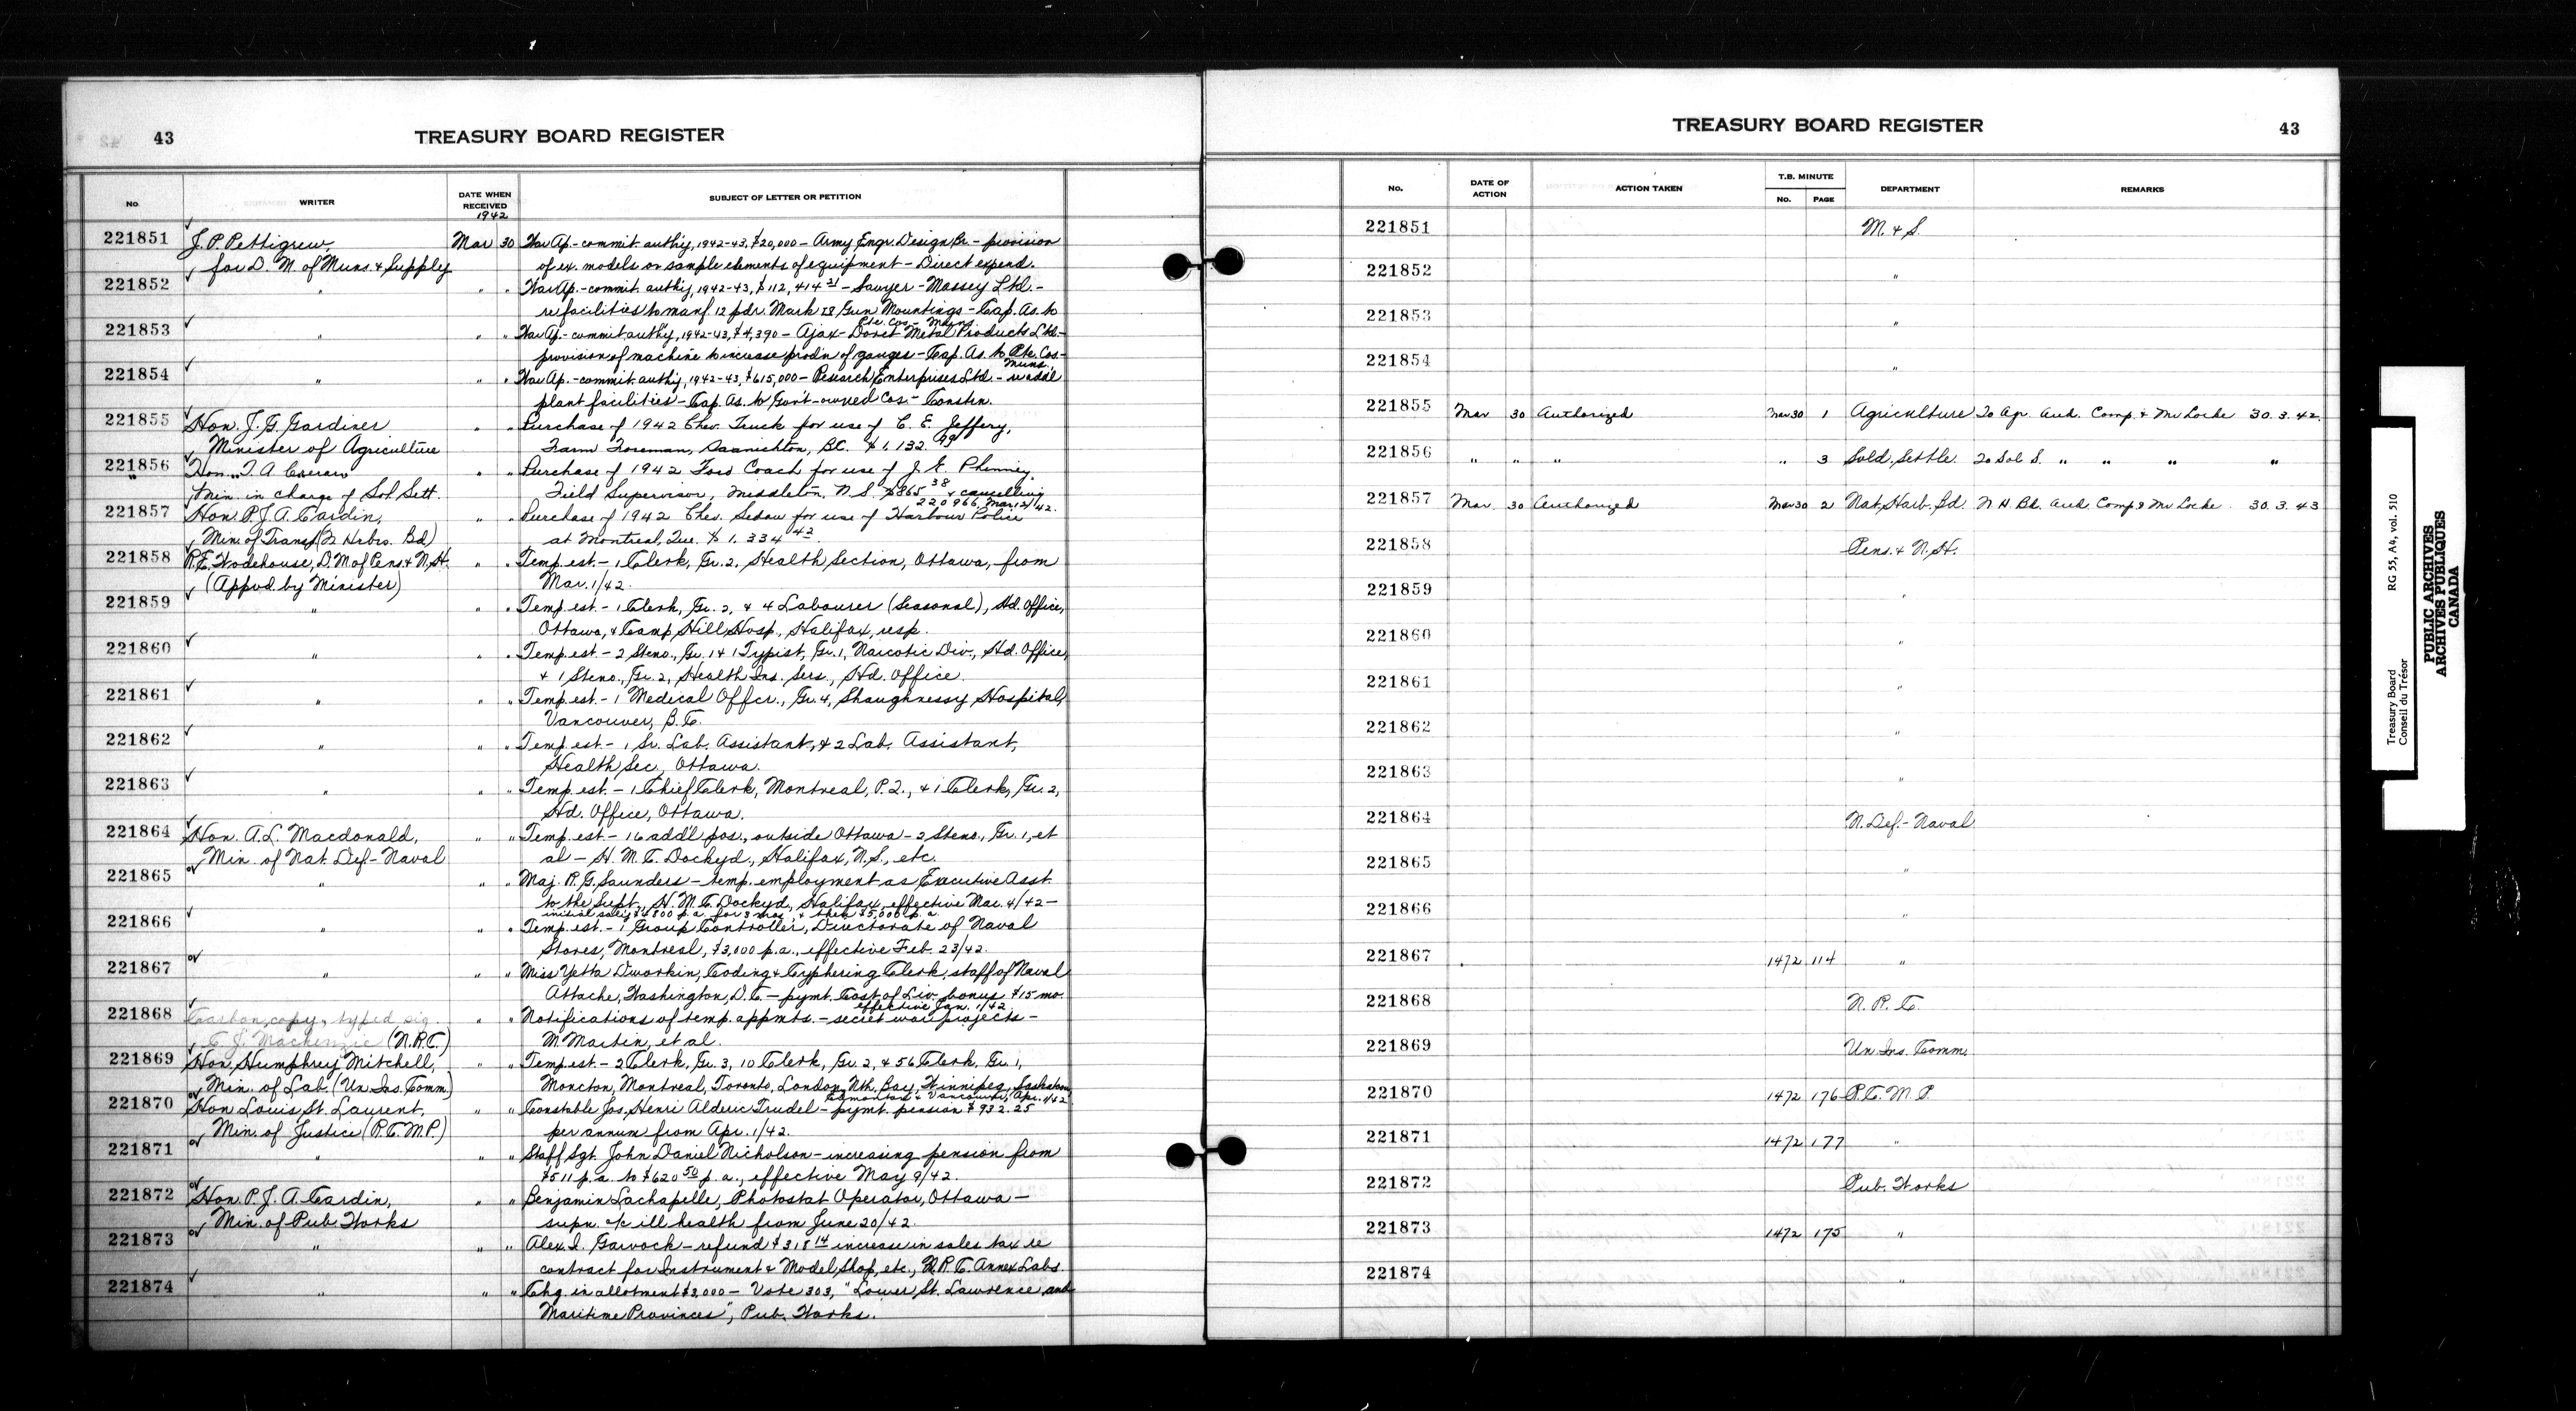 43 TREASURY BOARD REGISTER
No. WRITER DATE WHEN RECEIVED 1942 SUBJECT OF LETTER OR PETITION
221851 J. P. Pettigrew, Mar 30 War Ap.- commit. auth'y, 1942-43, $20,000 - Army Engr. Design Br. - provision
for D. M. of Muns & Supply of ex. models or sample elements of equipment - Direct expend.
221852 " " " War Ap.- commit. auth'y, 1942-43, $112,414 21 - Sawyer-Massey Ltd. -
re facilities to manf. 12 pdr. Mark Gun Mountings - Cap. As. to
Pte. Cos. - Muns.
221853 " " " War Ap.- commit. auth'y, 1942-43, $4,390 - Ajax-Dorst Metal Products Ltd. -
provision of machine to increase prod'n of gauges - Cap. As. to Pte. Cos. -
Muns.
221854 " " " War Ap.- commit. auth'y, 1942-43, $615,000 - Research Enterprises Ltd. - re add'l
plant facilities - Cap. As. to Gov't-owned Cos. - Constrn.
221855 Hon. J. G. Gardiner " " Purchase of 1942 Chev. Truck for use of C. E. Jeffery,
Minister of Agriculture Farm Foreman, Saanichton, B.C. $1,132. 99
221856 Hon. T. A. Crerar " " Purchase of 1942 Ford Coach for use of J. E. Phinney
Min. in charge of Sol. Sett. Field Supervisor, Middleton, N.S. $865 38 & cancelling
220966, Mar 12/42.
221857 Hon. P. J. A. Cardin, " " Purchase of 1942 Chev. Sedan for use of Harbour Police
Min. of Transp. (N. Hrbrs. Bd) at Montreal, Que. $1,334 42.
221858 R. E. Wodehouse, D. M. of Pens. & N. H. " " Temp. est. - 1 Clerk, Gr. 2, Health Section, Ottawa, from
(Appvd. by Minister) Mar. 1/42.
221859 " " " Temp. est. - 1 Clerk, Gr. 2, & 4 Labourer (Seasonal), Hd. Office,
Ottawa, & Camp Hill Hosp., Halifax, resp.
221860 " " " Temp. est. - 2 Steno., Gr. 1 & 1 Typist, Gr. 1, Narcotic Div., Hd. Office,
& 1 Steno., Gr. 2, Health Ins. Sers., Hd. Office.
221861 " " " Temp. est. - 1 Medical Offcr., Gr. 4, Shaughnessy Hospital,
Vancouver, B.C.
221862 " " " Temp. est. - 1 Sr. Lab. Assistant, & 2 Lab. Assistant,
Health Sec., Ottawa.
221863 " " " Temp. est. - 1 Chief Clerk, Montreal, P.Q., & 1 Clerk, Gr. 2,
Hd. Office, Ottawa.
221864 Hon. A. L. Macdonald, " " Temp. est. - 16 add'l pos., outside Ottawa - 2 Steno., Gr. 1, et
Min. of Nat. Def - Naval al - H. M. C. Dockyd., Halifax, N.S., etc.
221865 " " " Maj. R. G. Saunders - temp. employment as Executive Asst.
to the Supt., H. M. C. Dockyd., Halifax, effective Mar. 4/42 -
initial sal'y $4800 p.a. for 3 mos. & then $5,000 p.a.
221866 " " " Temp. est. - 1 Group Controller, Directorate of Naval
Stores, Montreal, $3,000 p.a., effective Feb. 23/42.
221867 " " " Miss Yetta Dworkin, Coding & Cyphering Clerk, staff of Naval
Attache, Washington, D.C. - pymt. Cost of Liv. bonus $15 mo.
effective Jan. 1/42
221868 Carbon copy, typed sig. " " Notifications of temp. appmts. - secret war projects -
C. J. Mackenzie (N.R.C.) M. Martin, et al.
221869 Hon. Humphrey Mitchell, " " Temp. est. - 2 Clerk, Gr. 3, 10 Clerk, Gr. 2, & 56 Clerk, Gr. 1,
Min. of Lab. (Un. Ins. Comm) Moncton, Montreal, Toronto, London, Nth. Bay, Winnipeg, Saskatoon,
Edmonton & Vancouver, Apr. 1/42
221870 Hon. Louis St. Laurent, " " Constable Jos. Henri Alderic Trudel - pymt. pension $932.25
Min. of Justice (R.C.M.P.) per annum from Apr. 1/42.
221871 " " " Staff Sgt. John Daniel Nicholson - increasing pension from
$511 p.a. to $620 50 p.a., effective May 9/42.
221872 Hon. P. J. A. Cardin, " " Benjamin Lachapelle, Photostat Operator, Ottawa -
Min. of Pub. Works supn. a/c ill health from June 20/42.
221873 " " " Alex. I. Garvock - refund $318 14 increase in sales tax re
contract for Instrument & Model Shop, etc., N.R.C. Annex Labs.
221874 " " " Chg. in allotment $3,000 - Vote 303, "Lower St. Lawrence and
Maritime Provinces", Pub. Works.
TREASURY BOARD REGISTER 43
No. DATE OF ACTION ACTION TAKEN T.B. MINUTE No. PAGE DEPARTMENT REMARKS
221851 M. & S.
221852 "
221853 "
221854 "
221855 Mar 30 Authorized Mar 30 1 Agriculture To Agr. Aud. Comp. & Mr Locke 30.3.42.
221856 " " " " 3 Sold. Settle. To Sol S. " " " "
221857 Mar. 30 Authorized Mar 30 2 Nat. Harb. Bd. N H. Bd. Aud. Comp & Mr Locke 30.3.43
221858 Pens. & N. H.
221859 "
221860 "
221861 "
221862 "
221863 "
221864 N. Def. - Naval
221865 "
221866 "
221867 1472 114 "
221868 N. R. C.
221869 Un. Ins. Comm.
221870 1472 176 R. C. M. P.
221871 1472 177 "
221872 Pub. Works
221873 1472 175 "
221874 "
Treasury Board RG 55, A4, vol. 510
Conseil du Trésor
PUBLIC ARCHIVES
ARCHIVES PUBLIQUES
CANADA